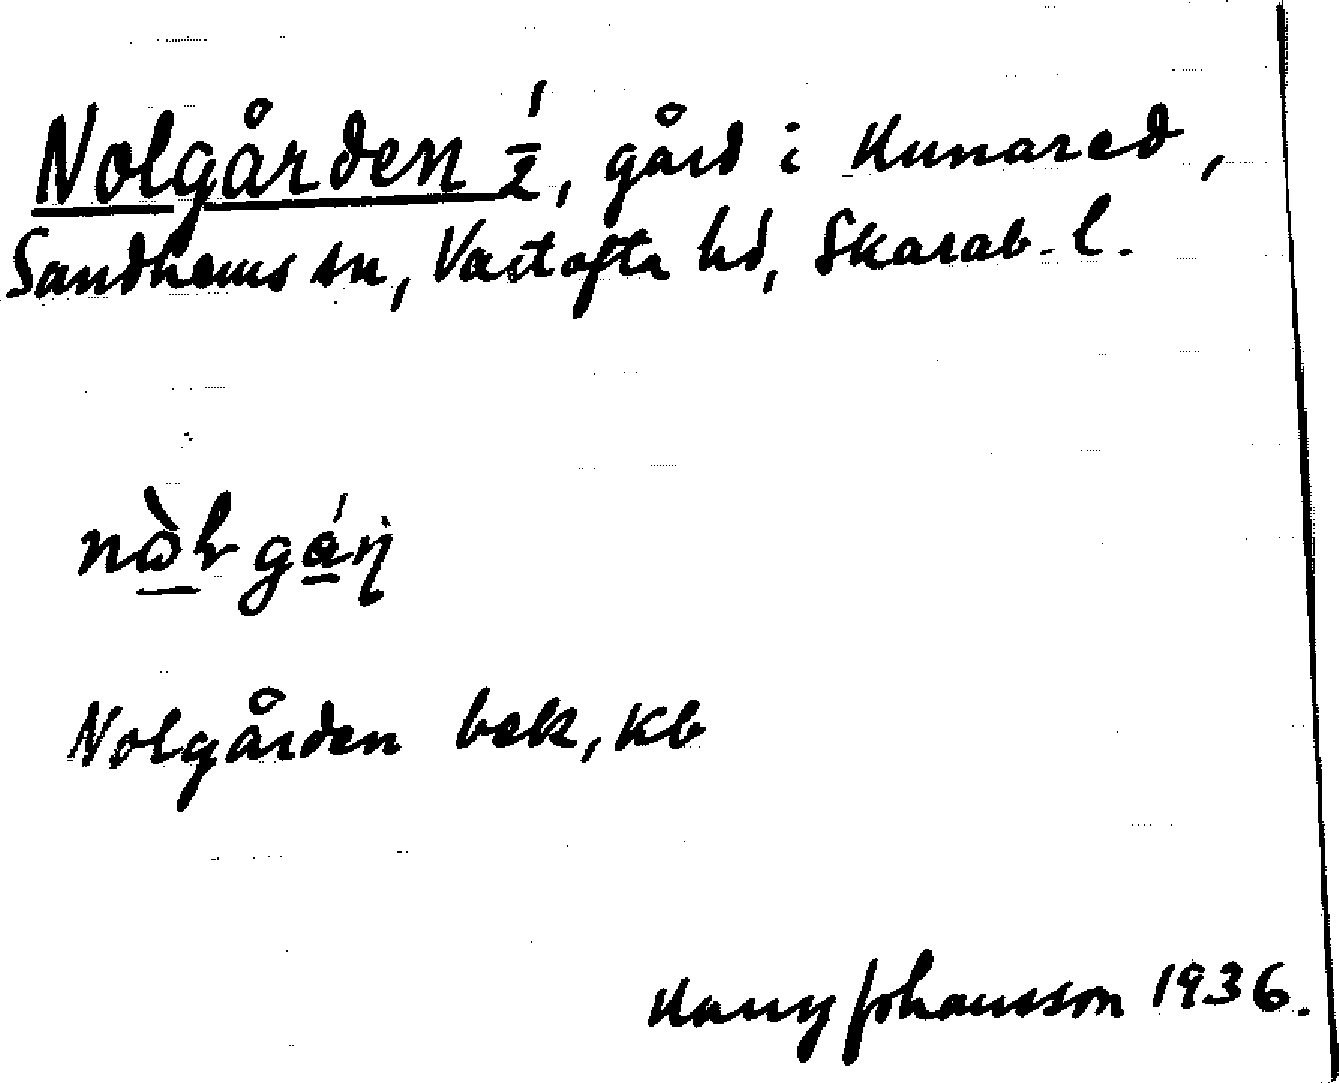 Nolgården 1/2, gård i Kunared,
Sandhems sn, Vartofta hd, Skarab. l.
Nolgården bek, Kb
Harry Johansson 1936.